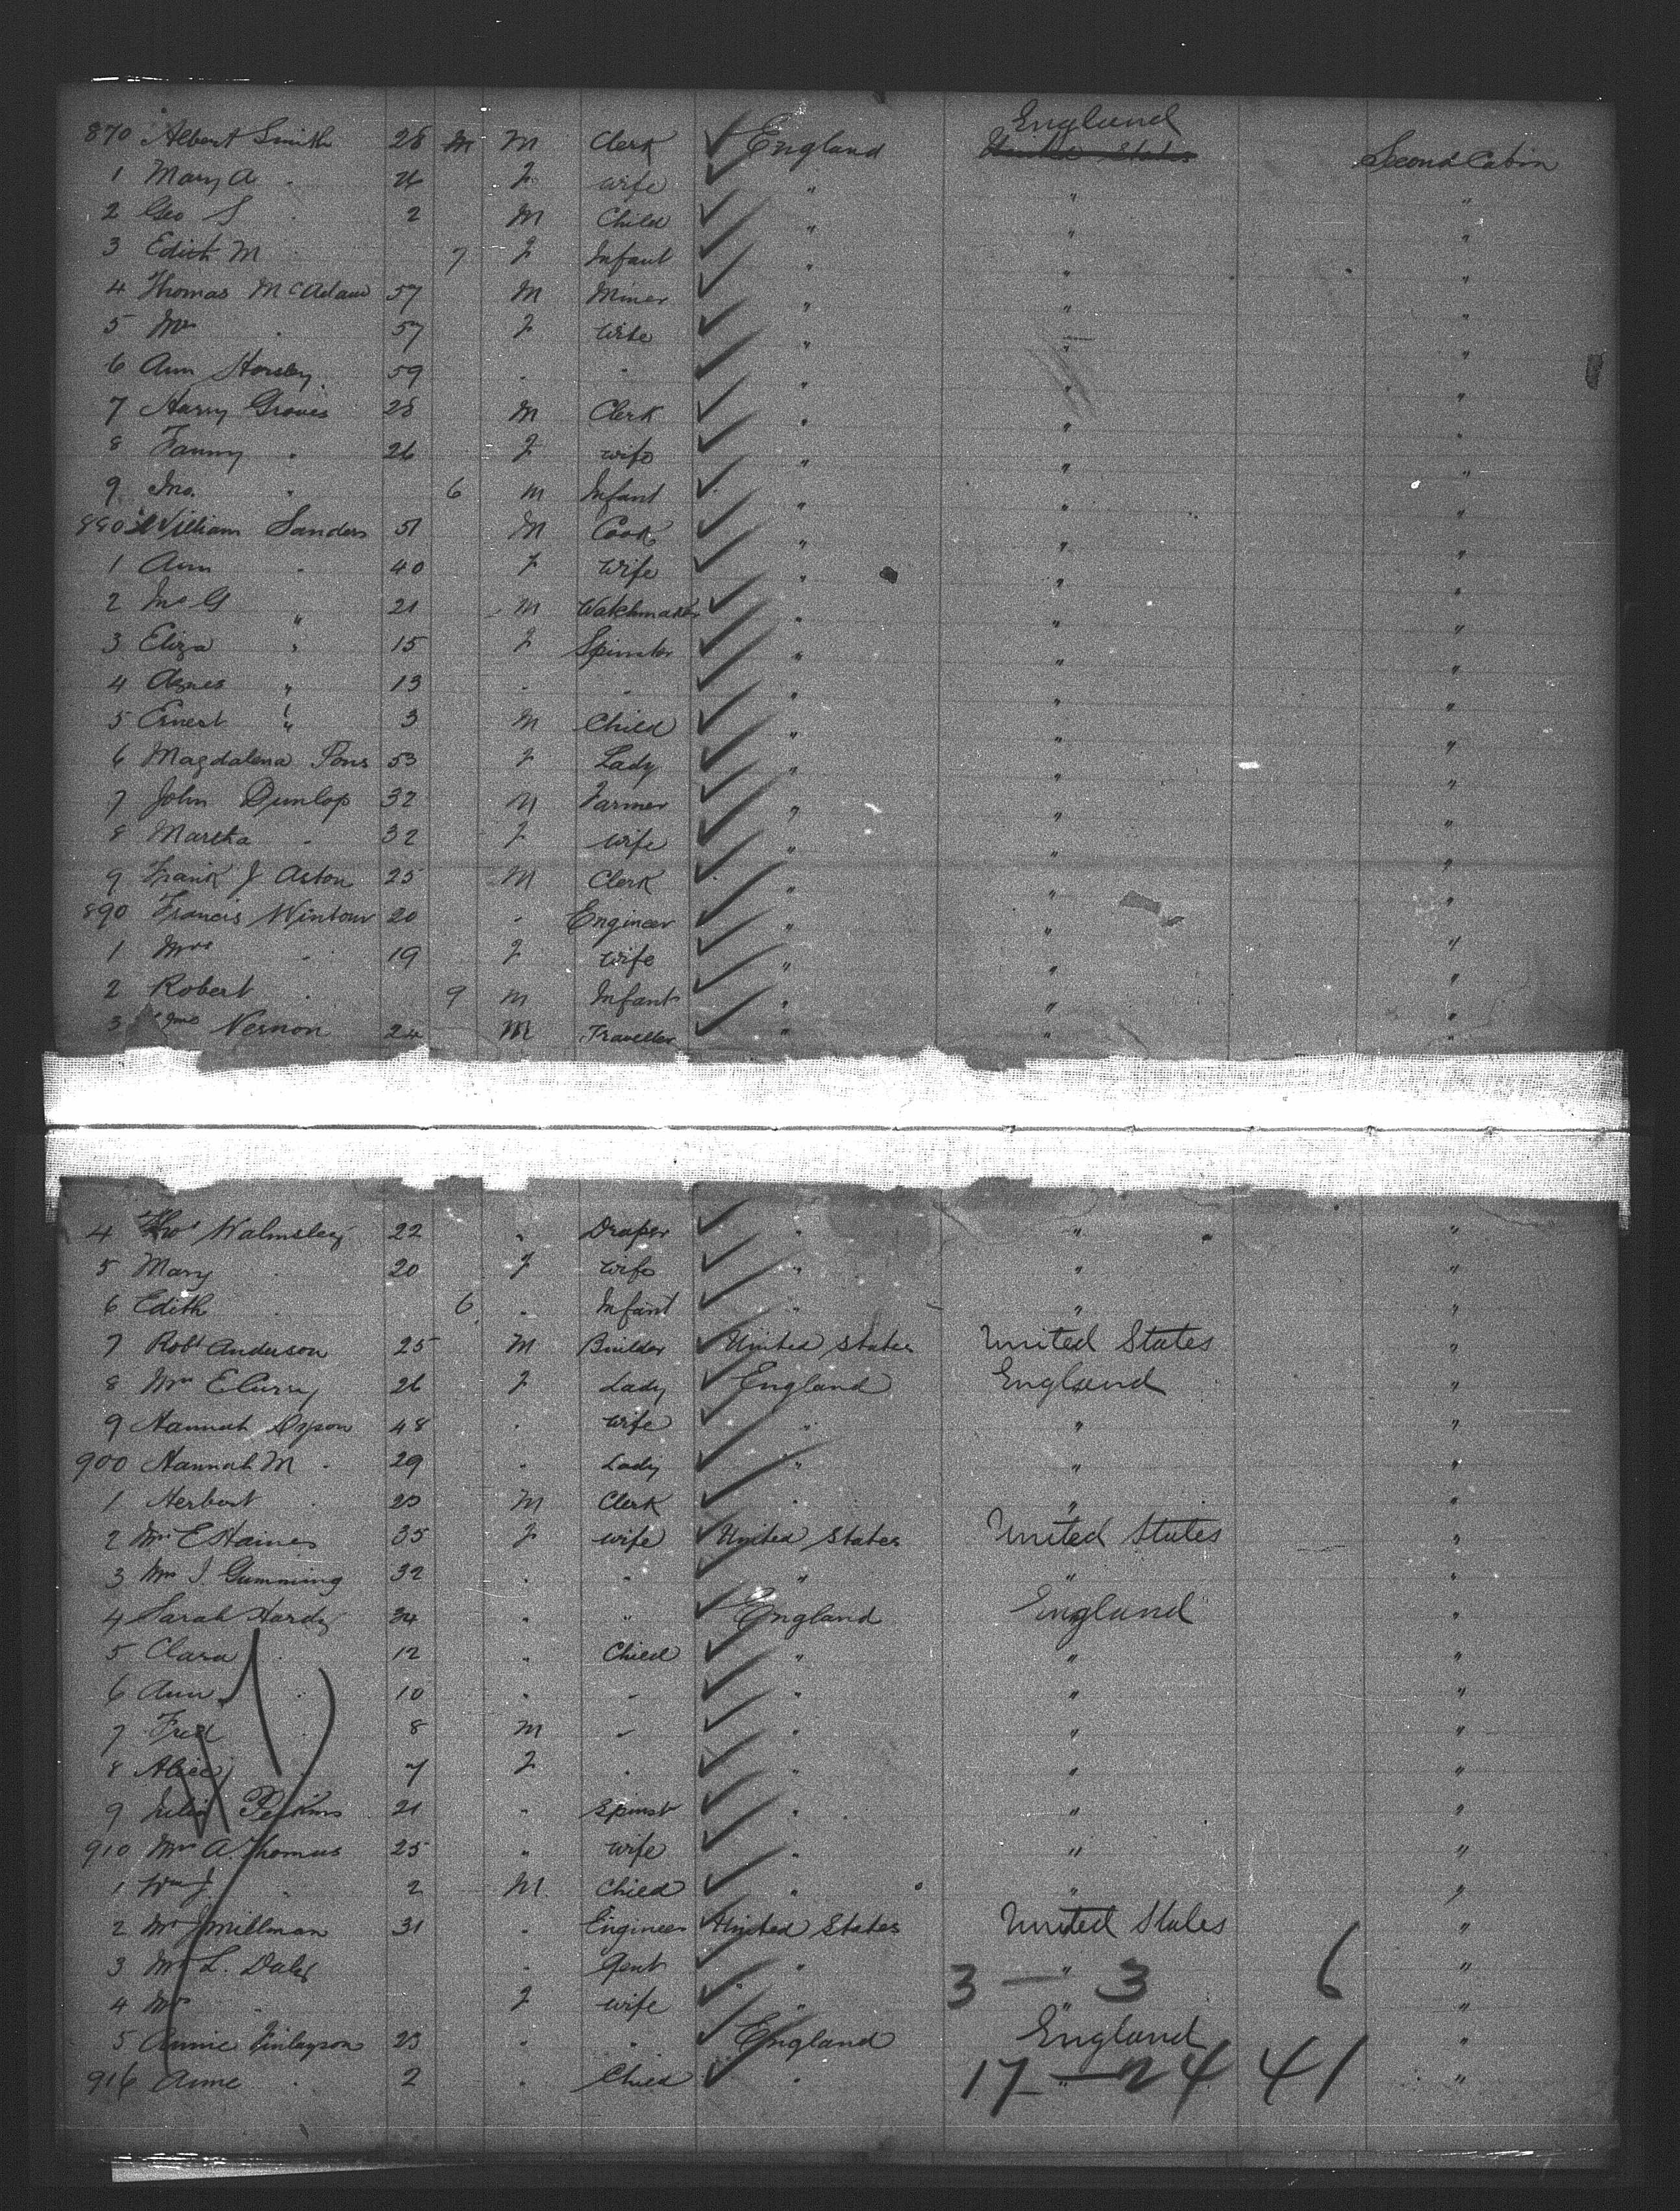 870 Albert Smith 28 M Clerk England England United States Second Cabin
1 Mary A " 26 F wife " " "
2 Geo S " 2 M Child " " "
3 Edith M " 7 F Infant " " "
4 Thomas McAdam 57 M Miner " " "
5 Mrs " 57 F Wife " " "
6 Ann Horsley 59 " " " " "
7 Harry Groves 28 M Clerk " " "
8 Fanny " 26 F wife " " "
9 Jno. " 6 M Infant " " "
880 William Sanders 51 M Cook " " "
1 Ann " 40 F Wife " " "
2 Jno G " 21 M Watchmaker " " "
3 Eliza " 15 F Spinster " " "
4 Agnes " 13 " " " " "
5 Ernest " 3 M Child " " "
6 Magdalena Pons 53 F Lady " " "
7 John Dunlop 32 M Farmer " " "
8 Martha " 32 F wife " " "
9 Frank J Aston 25 M Clerk " " "
890 Francis Wintour 20 " Engineer " " "
1 Mrs " 19 F wife " " "
2 Robert " 9 M Infant " " "
3 Vernon 24 M Traveller " " "
4 Thos Walmsley 22 " Draper " " "
5 Mary " 20 F wife " " "
6 Edith " 6 " Infant " " "
7 Robt Anderson 25 M Builder United States United States "
8 Mrs E Curry 26 F Lady England England "
9 Hannah Dyson 48 " wife " " "
900 Hannah M " 29 " Lady " " "
1 Herbert " 20 M Clerk " " "
2 Mrs E Haines 35 F wife United States United States "
3 Mrs J. Gumming 32 " " " " "
4 Sarah Hardy 34 " " England England "
5 Clara " 12 " Child " " "
6 Ann " 10 " " " " "
7 Fred " 8 M " " " "
8 Alice " 7 F " " " "
9 Julia Perkins 21 " Spinst " " "
910 Mrs A. Thomas 25 " wife " " "
1 Wm J. " 2 M Child " " "
2 Mr J Millman 31 " Engineer United States United States "
3 Mr L. Daly " Gent " " "
3 — 3 6
4 Mrs " F wife " " "
5 Annie Finlayson 23 " " England England "
916 Anne " 2 " Child " " "
17 — 24 41